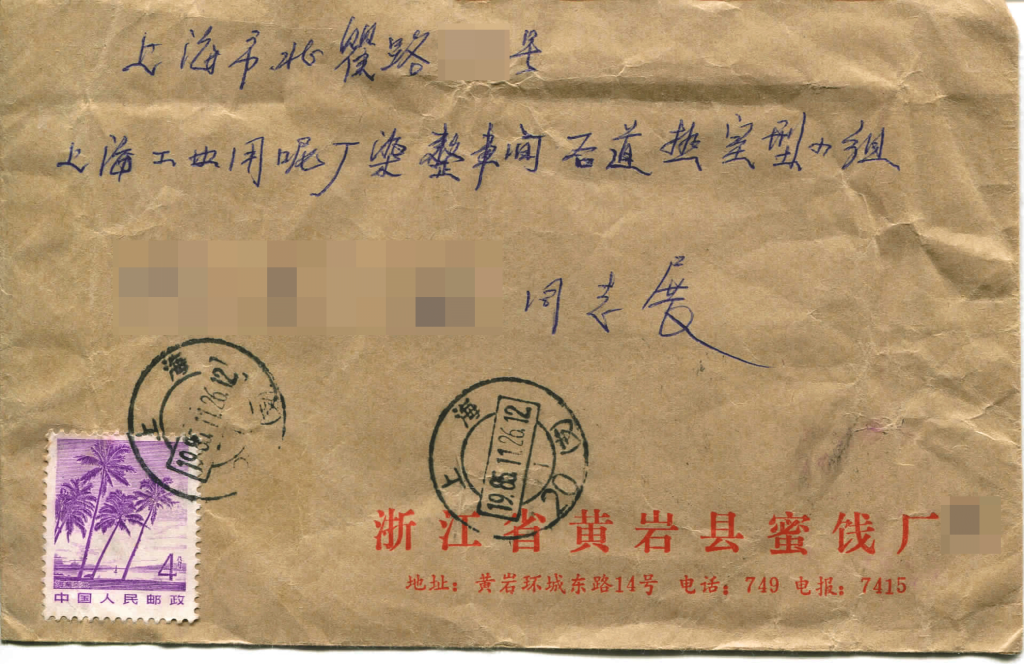 上海市北翟路 号
上海工业用呢厂染整车间 否道热定型小组
同志展
上海
19.85.11.26.12
上海
19.85.11.26.12
20
4
中国人民邮政
浙江省黄岩县蜜饯厂
地址：黄岩环城东路14号 电话：749 电报：7415